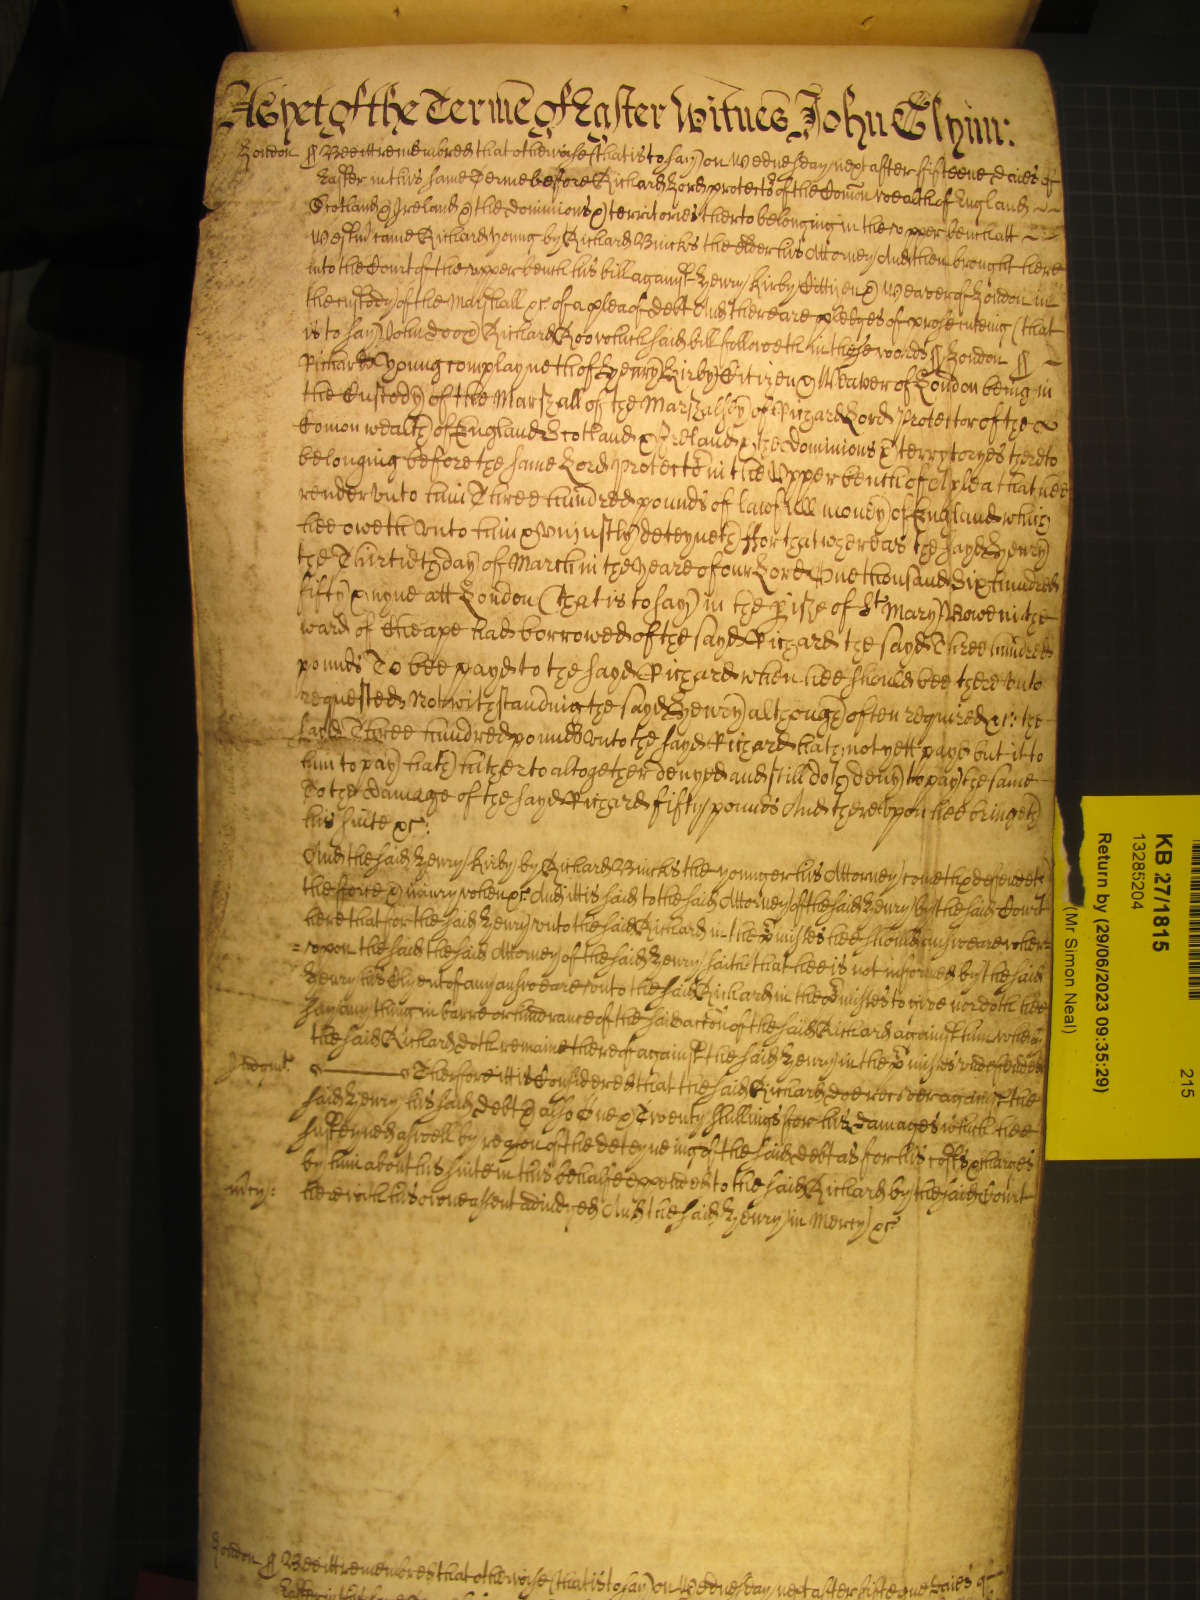 As yet of the Terme of Easter Witnes John Glynn:
London ss Bee itt remembred that otherwise (that is to say) on Wednesday next after fifteene daies of
Easter in this same Terme before Richard Lord protector of the Comon wealth of England
Scotland & Ireland & the dominions & territories therto belonging in the upper bench att
Westmr came Richard Young by Richard Buicks the elder his Attorney And then brought here
into the Court of the upper bench his bill against Henry Kirby Cittizen & Weaver of London in
the custody of the Marshall &c of a plea of debt And there are pledges of prosecuteing (that
is to say) John Doo & Richard Roo which said bill followeth in these words ss London ss
Richard Young complayneth of Henry Kirby Citizen & Weaver of London being in
the Custody of the Marshall of the Marshalsey of Richard Lord Protector of the
Comon wealth of England Scotland & Ireland & the Dominions & terrytoryes thereto
belonging before the same Lord protector in the Upper bench of A plea that hee
render unto him Three hundred pounds of lawfull money of England which
hee oweth unto him & uniustly deteyneth ffor that whereas the sayd Henry
the Thirtieth day of March in the yeare of our Lord One thousand Six hundred
fifty & nyne att London (that is to say) in the pish of St Mary Bowe in the
ward of Cheape had borrowed of the sayd Richard the sayd Three hundred
pounds To bee payd to the sayd Richard when hee should bee thereunto
requested Notwithstanding the sayd Henry although often required &c: the
sayd Three hundred pounds unto the sayd Richard hath not yett payd but it to
him to pay hath hitherto altogether denyed and still doth deny to pay the same
To the damage of the sayd Richard fifty pounds And thereupon hee bringeth
his suite &c:
And the said Henry Kirby by Richard Buicks the younger his Attorney cometh & defendeth
the force & iniury when &c And itt is said to the said Attorney of the said Henry by the said Court
here that for the said Henry unto the said Richard in the pmisses hee should answeare wher=
=upon the said the said Attorney of the said Henry saith that hee is not informed by the said
Henry his Clyent of any answeare unto the said Richard in the pmisses to give nor doth hee
say any thing in barre or hindrance of the said accon of the said Richard against him wherby
the said Richard doth remaine thereof against the said Henry in the pmisses undefended
Judgmt. Therfore itt is Considered that the said Richard doe recover against the
said Henry his said debt & also One & Twenty shillings for his damages which hee
susteyned aswell by reason of the deteyneing of the said debt as for his costs & charges
by him about his suite in this behalfe expended to the said Richard by the said Court
mcy: heere with his owne assent adiudged And the said Henry in Mercy &c
London ss Bee itt remembred that otherwise (that is to say) on Wednesday next after fifteene daies of
KB 27/1815
13285204
Return by (29/06/2023 09:35:29)
(Mr Simon Neal)
215